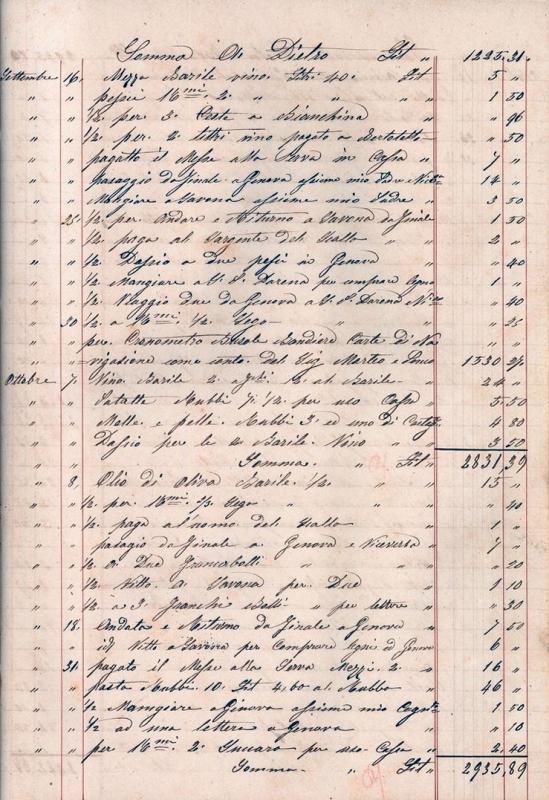 Somma Di Dietro Fst " 1225,31.
Settembre 16. Mezza Barile vino. Litri 40. Fst 5 "
" " pessi 18mi 2. " " " 1 50
" " 1/2 per. 3. Ceste a Bianchina " " 96
" " 1/2 per. 2 littri vino pagato a " 50
" " pagatto il Mese alla Serva in Casa " 7 "
" " passaggio da Finale a Genova assieme mio Padre e 14 "
" " Mangiare a Savona assieme mio Padre " 3 50
" 25. 1/2 per. Andare e Ritorno a Savona da Finale 1 50
" " 1/2 paga al Sargente del " " 2 "
" " 1/2 Dassio a due pessi in Genova " " 40
" " 1/2 Mangiare a Darena per comprare 1 "
" " 1/2 Viaggio due da Genova a Darena " 40
" 30 1/2 a 1/2 Sego " " " 25
" " per. Cronometro Bandiere Carte di Na
" " vigasione come conto. del Sig 1530 27
Ottobre 7. Vino Barile 2. a 12. al Barile " 24 "
" " Patatte Rubbi 7. 1/2. per uso Casa " 5 50
" " Molle. e pelli. Rubbi 3. ed uno di 4 80
" " Dassio per le 2. Barile. Vino " " 3 50
" " Somma. " Fst " 2831,39
" 8. Olio di Oliva Barile. 1/2. " " 15 "
" " 1/2. per. 18mi 2/3. Sego " " " 40
" " 1/2. paga all'uomo del " 1 "
" " pasagio da Finale a Genova e Viceversa " 7 "
" " 1/2 a Due Francobolli " " " 20
" " 1/2. Vitto. a Savona per Due " 1 10
" " 1/2 a 3. Franchi Bolli " per lettere " " 30
" 18. Andata e Ritorno da Finale a Genova " 7 50
" " id. Vitto a Savona per Comprare ed Genova 6 "
" 31. pagato il Mese alla Serva Mezzi. 2. " 16 "
" " pasta Rubbi. 10. Fst 4,60 al Rubbo " 46 "
" " 1/2 Mangiare a Genova assieme mio 1 50
" " 1/2 ad una lettera a Genova " " 10
" " per 18mi 2. Succaro per uso Casa " 2. 40
Somma " Fst " 2935,89